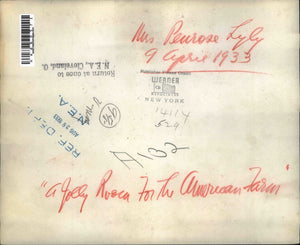 Mrs Penrose Lyly
9 April 1933
Return at once to
N. E. A., Cleveland, O.
WERNER
NEW YORK
14114
529
REF. DEPT.
N.E.A.
A-132
"A Jolly Room For The American Farm"